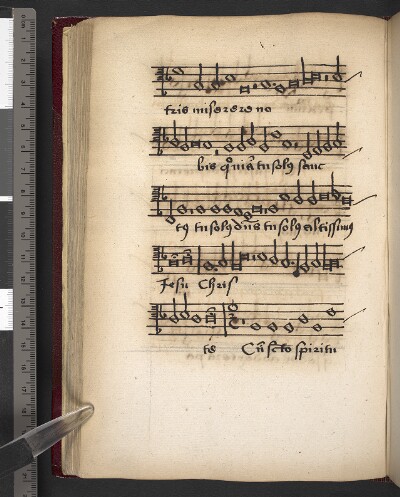 tris miserere no
bis qm̄ tu solus sanc
tus tu solus dn̄s tu solus altissimus
Jesu Chris
te Cū scto spiritu